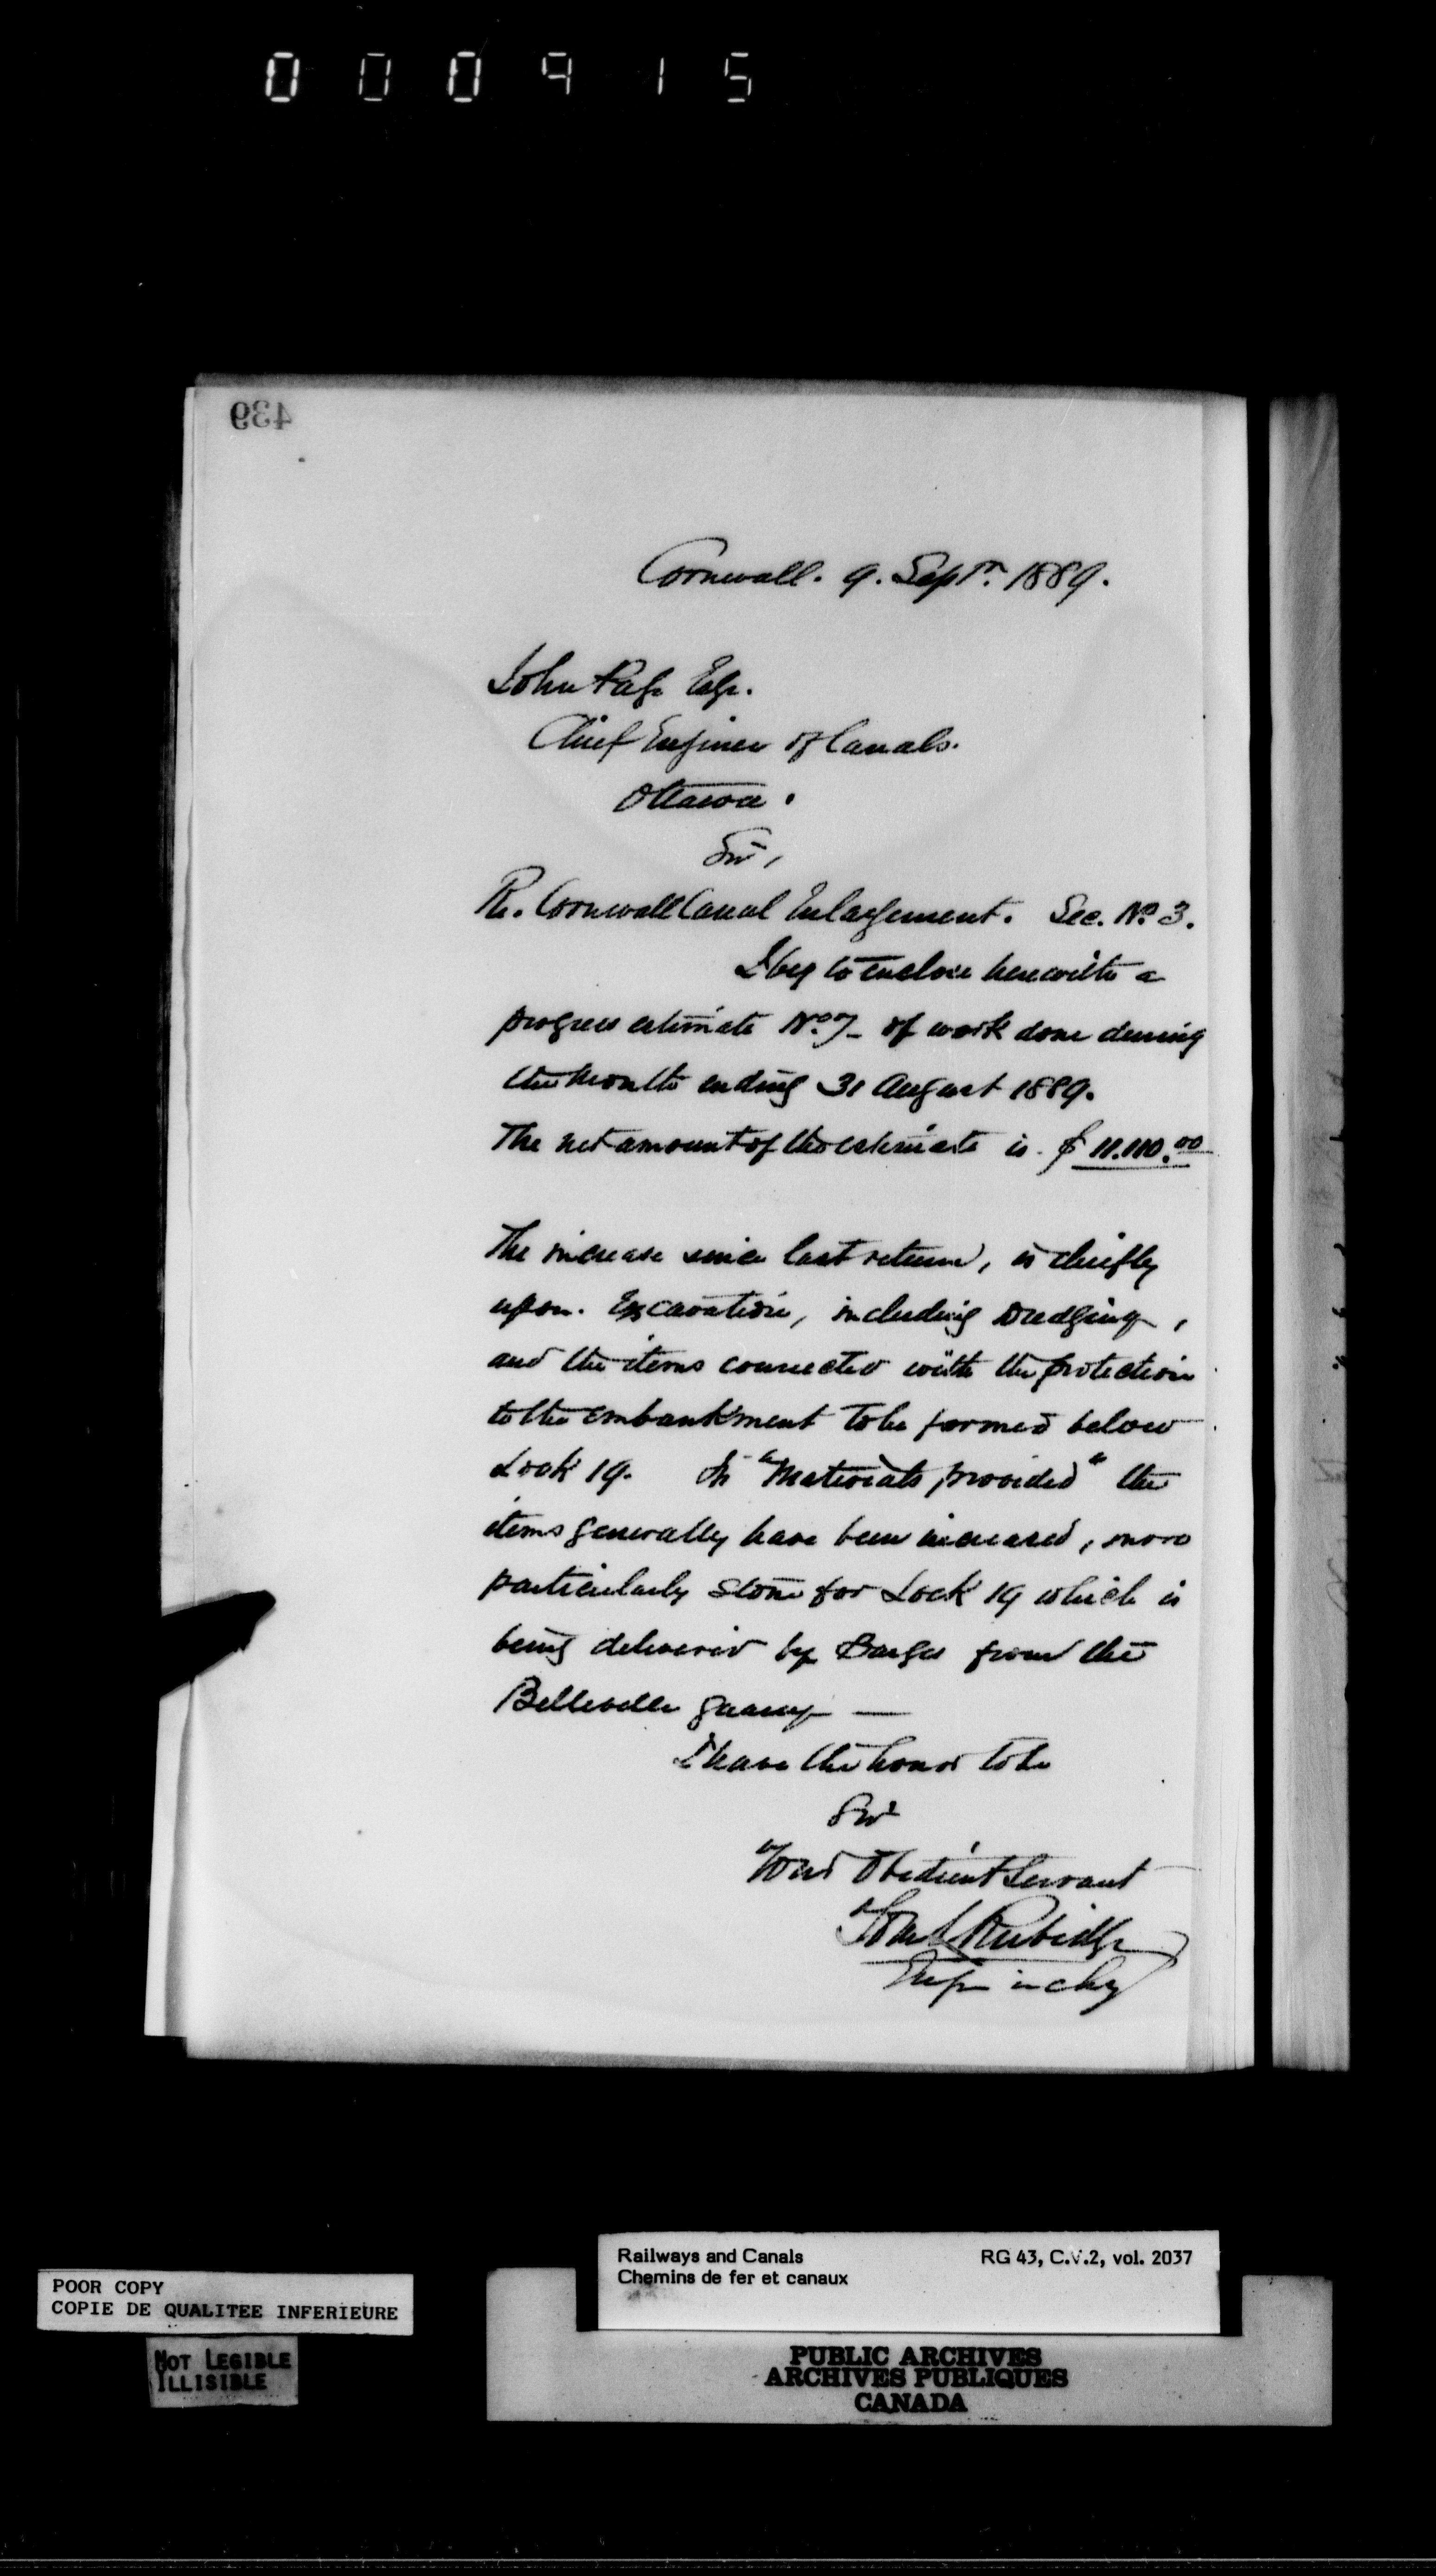 000915
439
Cornwall. 9. Septr. 1889.
John Page Esqr.
Chief Engineer of Canals.
Ottawa.
Sir,
Re. Cornwall Canal Enlargement. Sec. No. 3.
I beg to enclose herewith a
progress estimate No. 7 - of work done during
the month ending 31 August 1889.
The net amount of the estimate is. $ 11.110.00
The increase since last return, is chiefly
upon. Excavation, including Dredging,
and the items connected with the protection
to the embankment to be formed below
Lock 19. In "Materials provided" the
items generally have been increased, more
particularly stone for Lock 19 which is
being delivered by Barges from the
Belleville quarry —
I have the honor to be
Sir
Your Obedient Servant
Rubidge
Engr in chg
Railways and Canals RG 43, C.V.2, vol. 2037
Chemins de fer et canaux
POOR COPY
COPIE DE QUALITEE INFERIEURE
NOT LEGIBLE
ILLISIBLE
PUBLIC ARCHIVES
ARCHIVES PUBLIQUES
CANADA